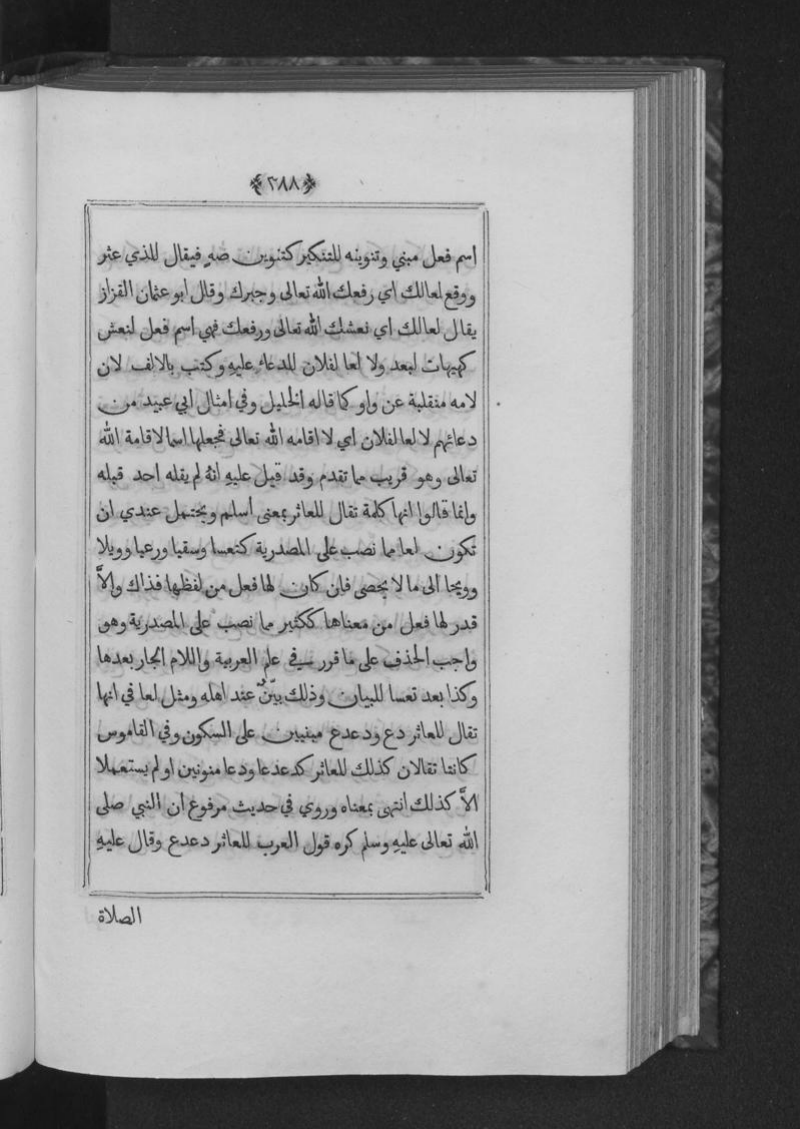 ﴿٢٨٨﴾
اسم فعل مبني وتنوينه للتنكير كتنوين صهٍ فيقال للذي عثر
ووقع لعالك اي رفعك الله تعالى وجبرك وقال ابو عثمان القزاز
يقال لعالك اي نعشك الله تعالى ورفعك فهي اسم فعل لنعش
كهيهات لبعد ولا لعا لفلان للدعاء عليهِ وكتب بالالف لان
لامه منقلبة عن واو كما قاله الخليل وفي امثال ابي عبيد من
دعائهم لا لعا لفلان اي لا اقامه الله تعالى فجعلها اسما لاقامة الله
تعالى وهو قريب مما تقدم وقد قيل عليهِ انهُ لم يقله احد قبله
وانما قالوا انها كلمة تقال للعاثر بمعنى اسلم ويحتمل عندي ان
تكون لعا مما نصب على المصدرية كتعسا وسقيا ورعيا وويلا
وويحا الى ما لا يحصى فان كان لها فعل من لفظها فذاك والاَّ
قدر لها فعل من معناها ككثير مما نصب على المصدرية وهو
واجب الحذف على ما قرر في علم العربية واللام الجار بعدها
وكذا بعد تعسا للبيان وذلك بيّنٌ عند اهله ومثل لعا في انها
تقال للعاثر دع ودعدع مبنيين على السكون وفي القاموس
كانتا تقالان كذلك للعاثر كدعدعا ودعا منونين او لم يستعملا
الاَّ كذلك انتهى بمعناه وروي في حديث مرفوع ان النبي صلى
الله تعالى عليهِ وسلم كره قول العرب للعاثر دعدع وقال عليهِ
الصلاة